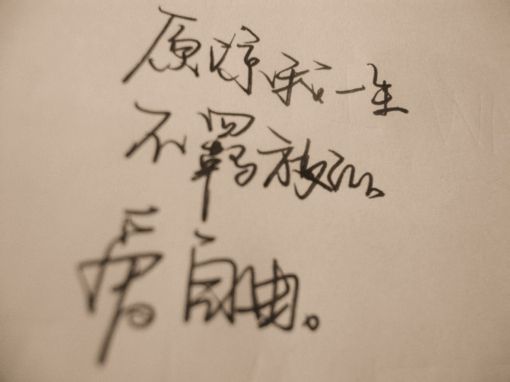 原谅我一生
不羁放纵
爱自由。